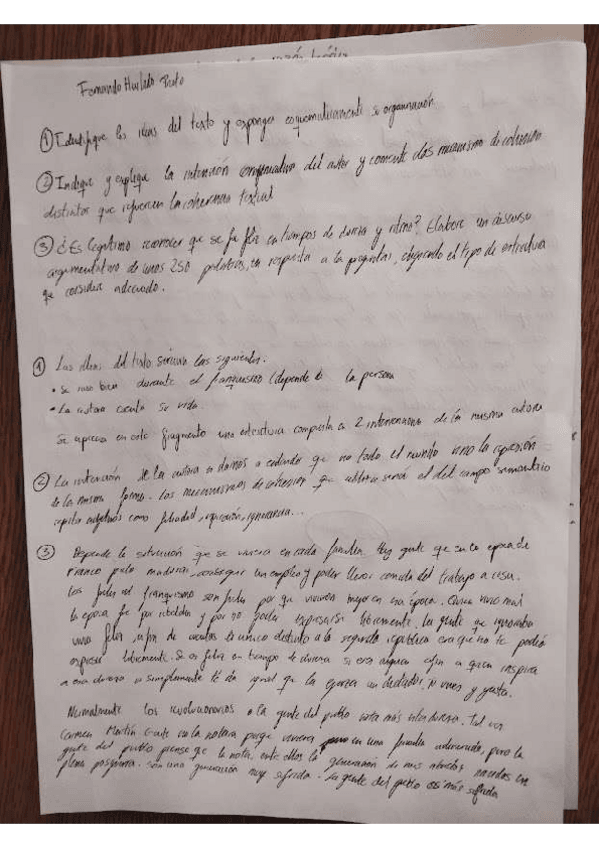 Fernando Hurtado Prieto
① Identifique las ideas del texto y exponga esquemáticamente su organización
② Indique y explique la intención comunicativa del autor y comente dos mecanismos de cohesión
distintos que refuercen la coherencia textual
③ ¿Es legítimo reconocer que se fue feliz en tiempos de dureza y ? Elabore un discurso
argumentativo de unos 250 palabras, en respuesta a la pregunta, eligiendo el tipo de estructura
que considere adecuado.
① Las ideas del texto serían las siguientes.
• Se vivió bien durante el franquismo (depende de la persona
• La autora cuenta su vida.
Se aprecia en este fragmento una estructura compuesta en 2 intervenciones de la misma autora
② La intención de la autora es darnos a entender que no todo el mundo vivió la represión
de la misma forma. Los mecanismos de cohesión que serían el del campo semántico
repite adjetivos como felicidad, represión, ignorancia...
③ Depende la situación que se viviera en cada familia. Hay gente que en la época de
Franco pudo madurar, conseguir un empleo y poder llevar comida del trabajo a casa.
Los del franquismo son por que vivieron mejor en esa época. Quien vivió mal
la época fue por rebeldía y por no poder expresarse libremente. La gente que ignoraba
vivió feliz, a fin de cuentas lo único distinto a la segunda república era que no te podías
expresar libremente. Se es feliz en tiempo de dureza si eras alguien afín a quien
esa dureza o simplemente te da igual que la ejerza un dictador, si vives y
Normalmente los revolucionarios o la gente del pueblo nota más esta dureza. Tal vez
Carmen Martín Gaite no la notara porque viviera en una familia adinerada, pero la
gente del pueblo pienso que la nota, entre ellos la generación de mis abuelos nacidos en
plena posguerra. Son una generación muy sufrida. La gente del pueblo es más sufrida